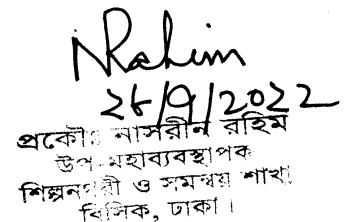 NRahim
২৮/9/2022
প্রকৌঃ নাসরীন রহিম
উপ-মহাব্যবস্থাপক
শিল্পনগরী ও সমন্বয় শাখা
বিসিক, ঢাকা।